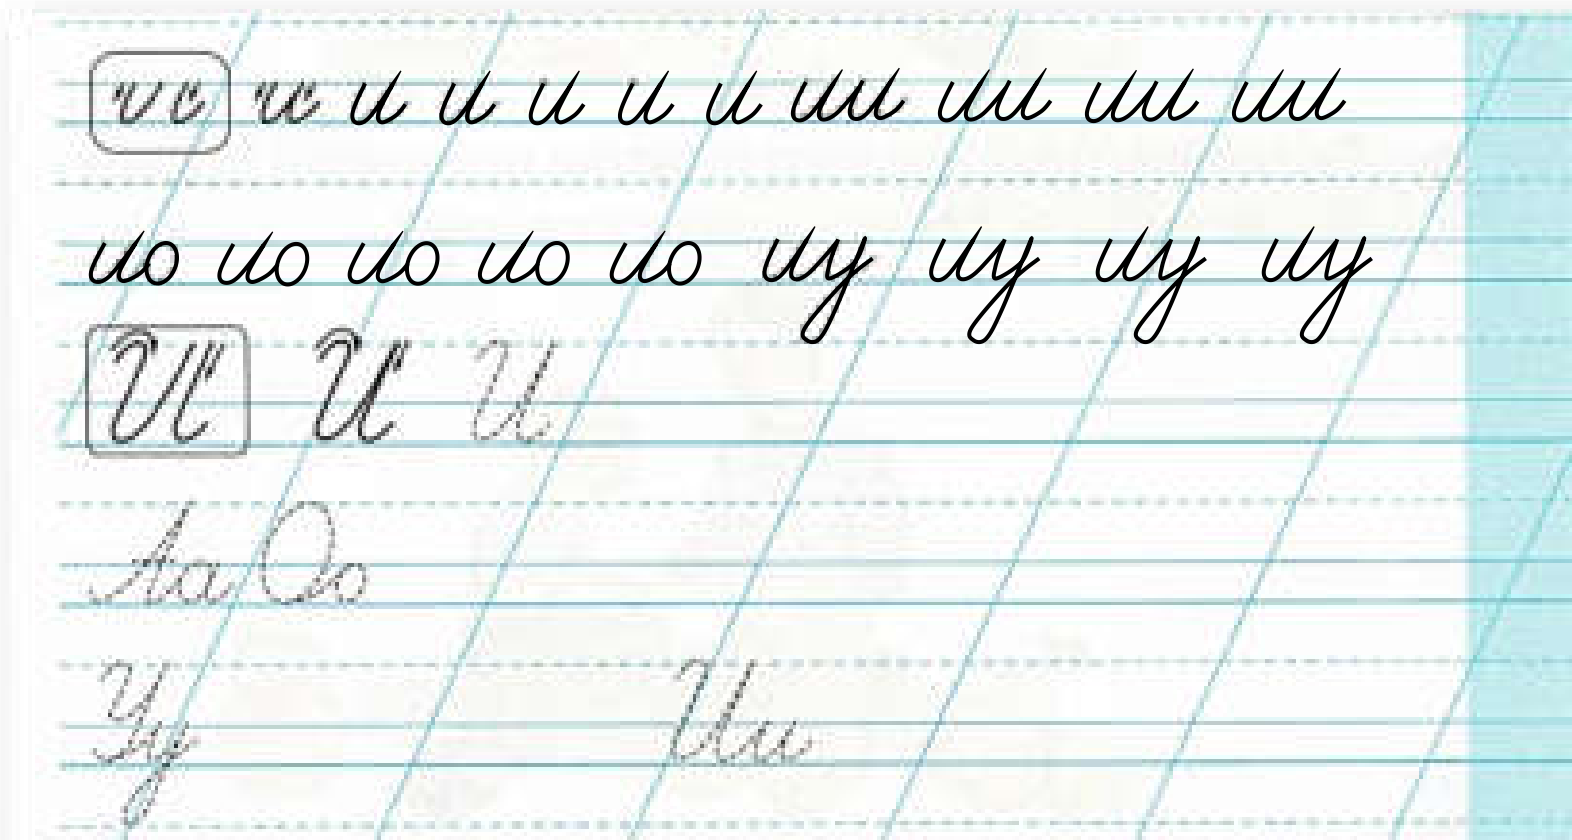 и и и и и и и ии ии ии ии
ио ио ио ио ио иу иу иу иу
И И И
Аа Оо
Уу Ии